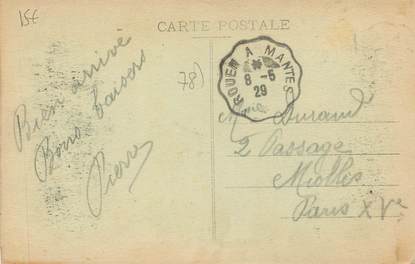 15€
CARTE POSTALE
78)
ROUEN A MANTES
8-5
29
Bien arrivé
Bons baisers
Pierre
M Durand
2 Passage
Miollis
Paris XVe